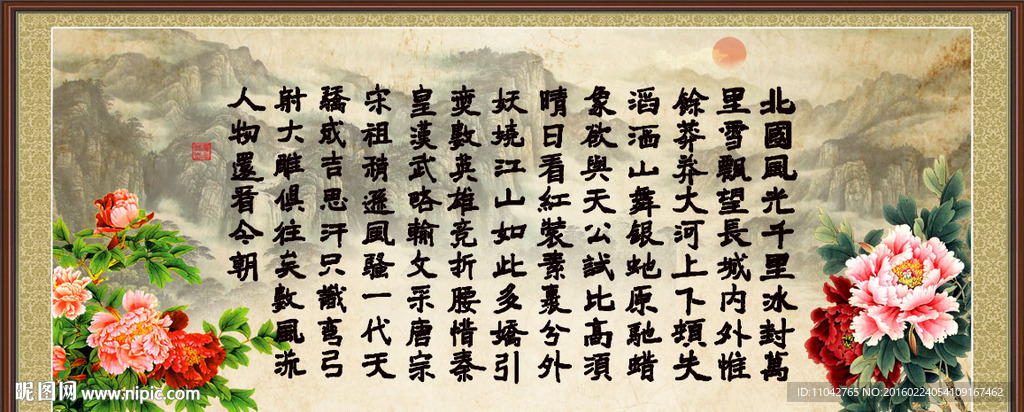 北國風光千里冰封萬
里雪飄望長城内外惟
餘莽莽大河上下頓失
滔洒山舞銀虵原馳蜡
象欲與天公試比高須
晴日看紅裝素裹兮外
妖嬈江山如此多嬌引
变數英雄竞折腰惜秦
皇漢武略輸文采唐宗
宋祖稍遜風騷一代天
驕成吉思汗只識彎弓
射大雕俱往矣數風流
人物還看今朝
昵图网 www.nipic.com
ID:11042765 NO:20160224054109167462